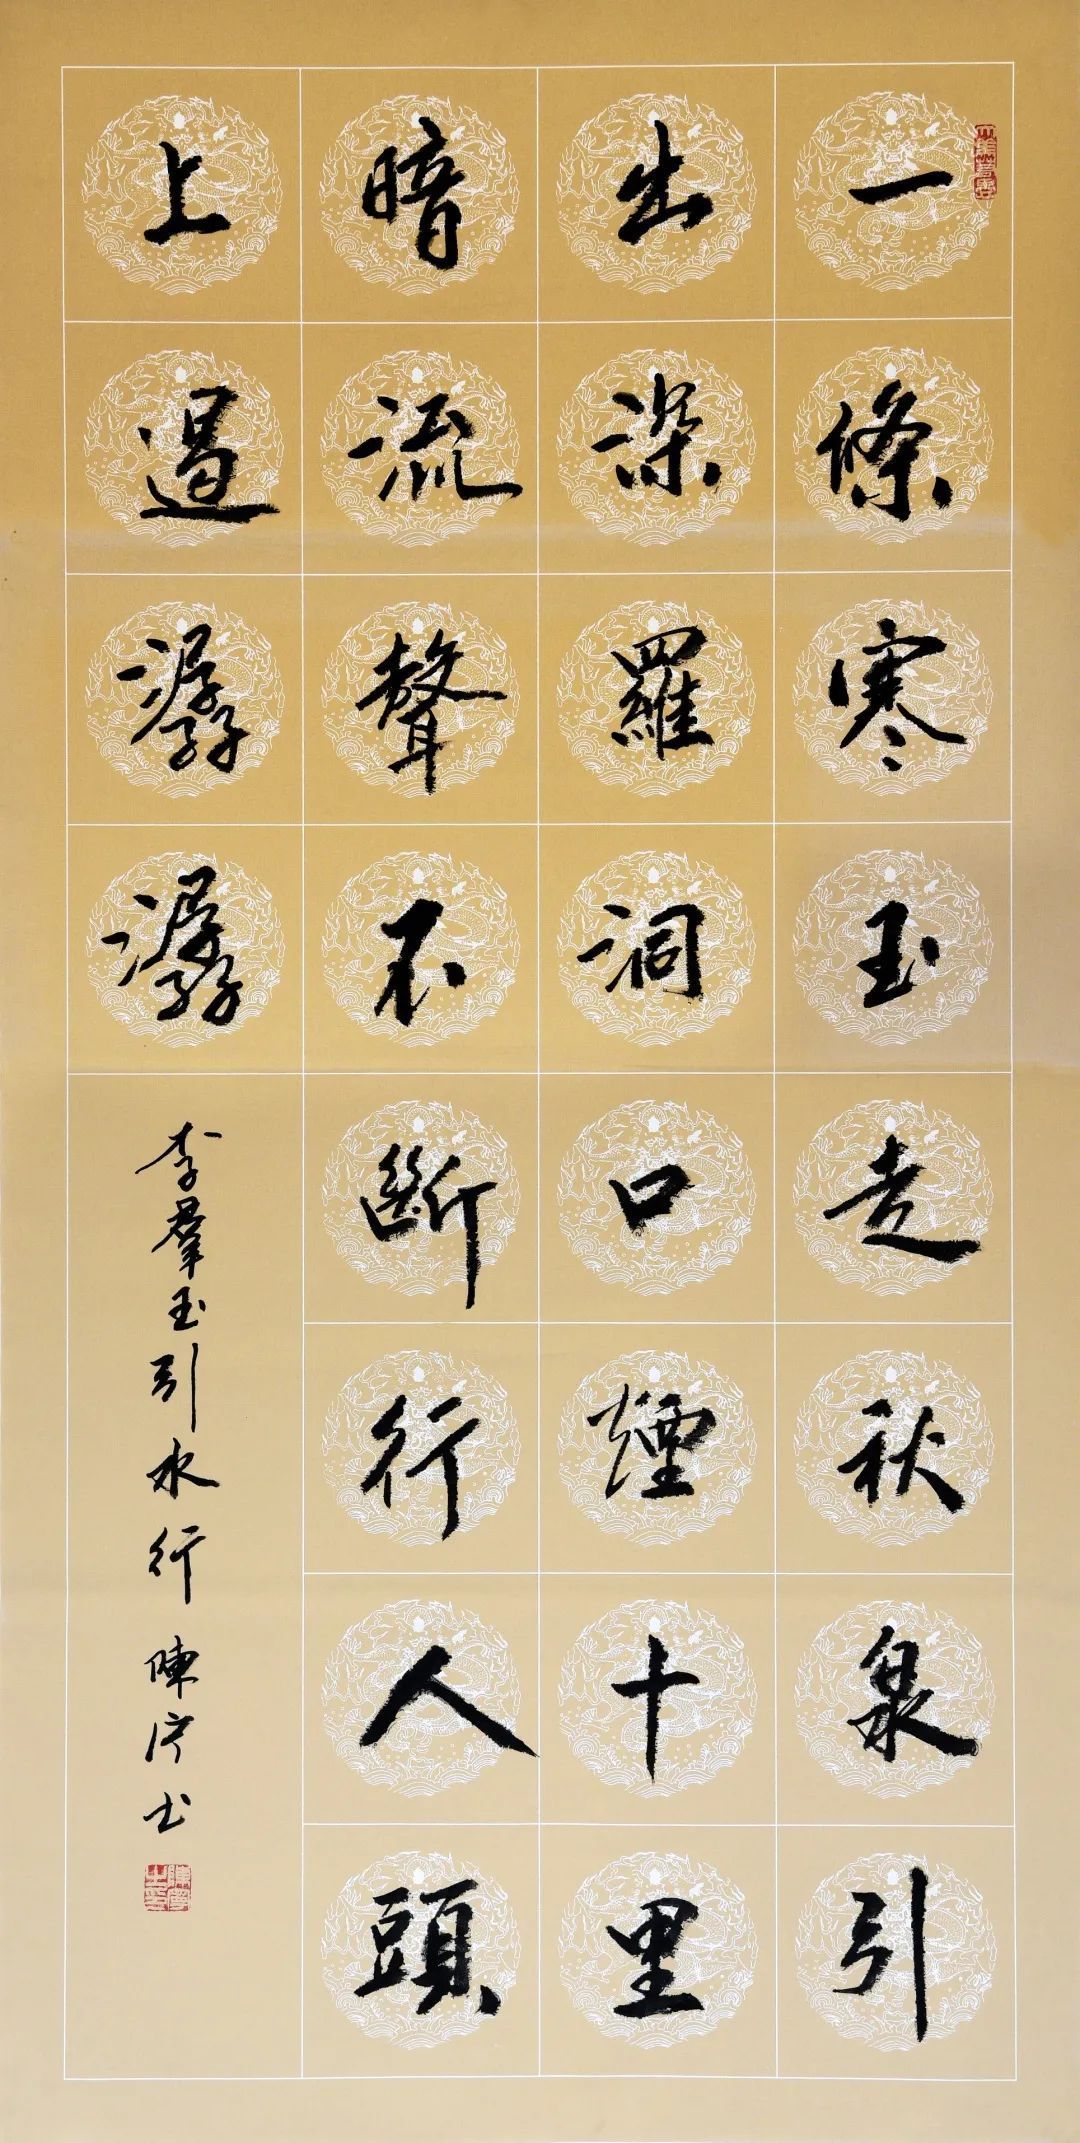 一條寒玉走秋泉引
出深羅洞口煙十里
暗流聲不斷行人頭
上過潺潺
李羣玉引水行 陳 书